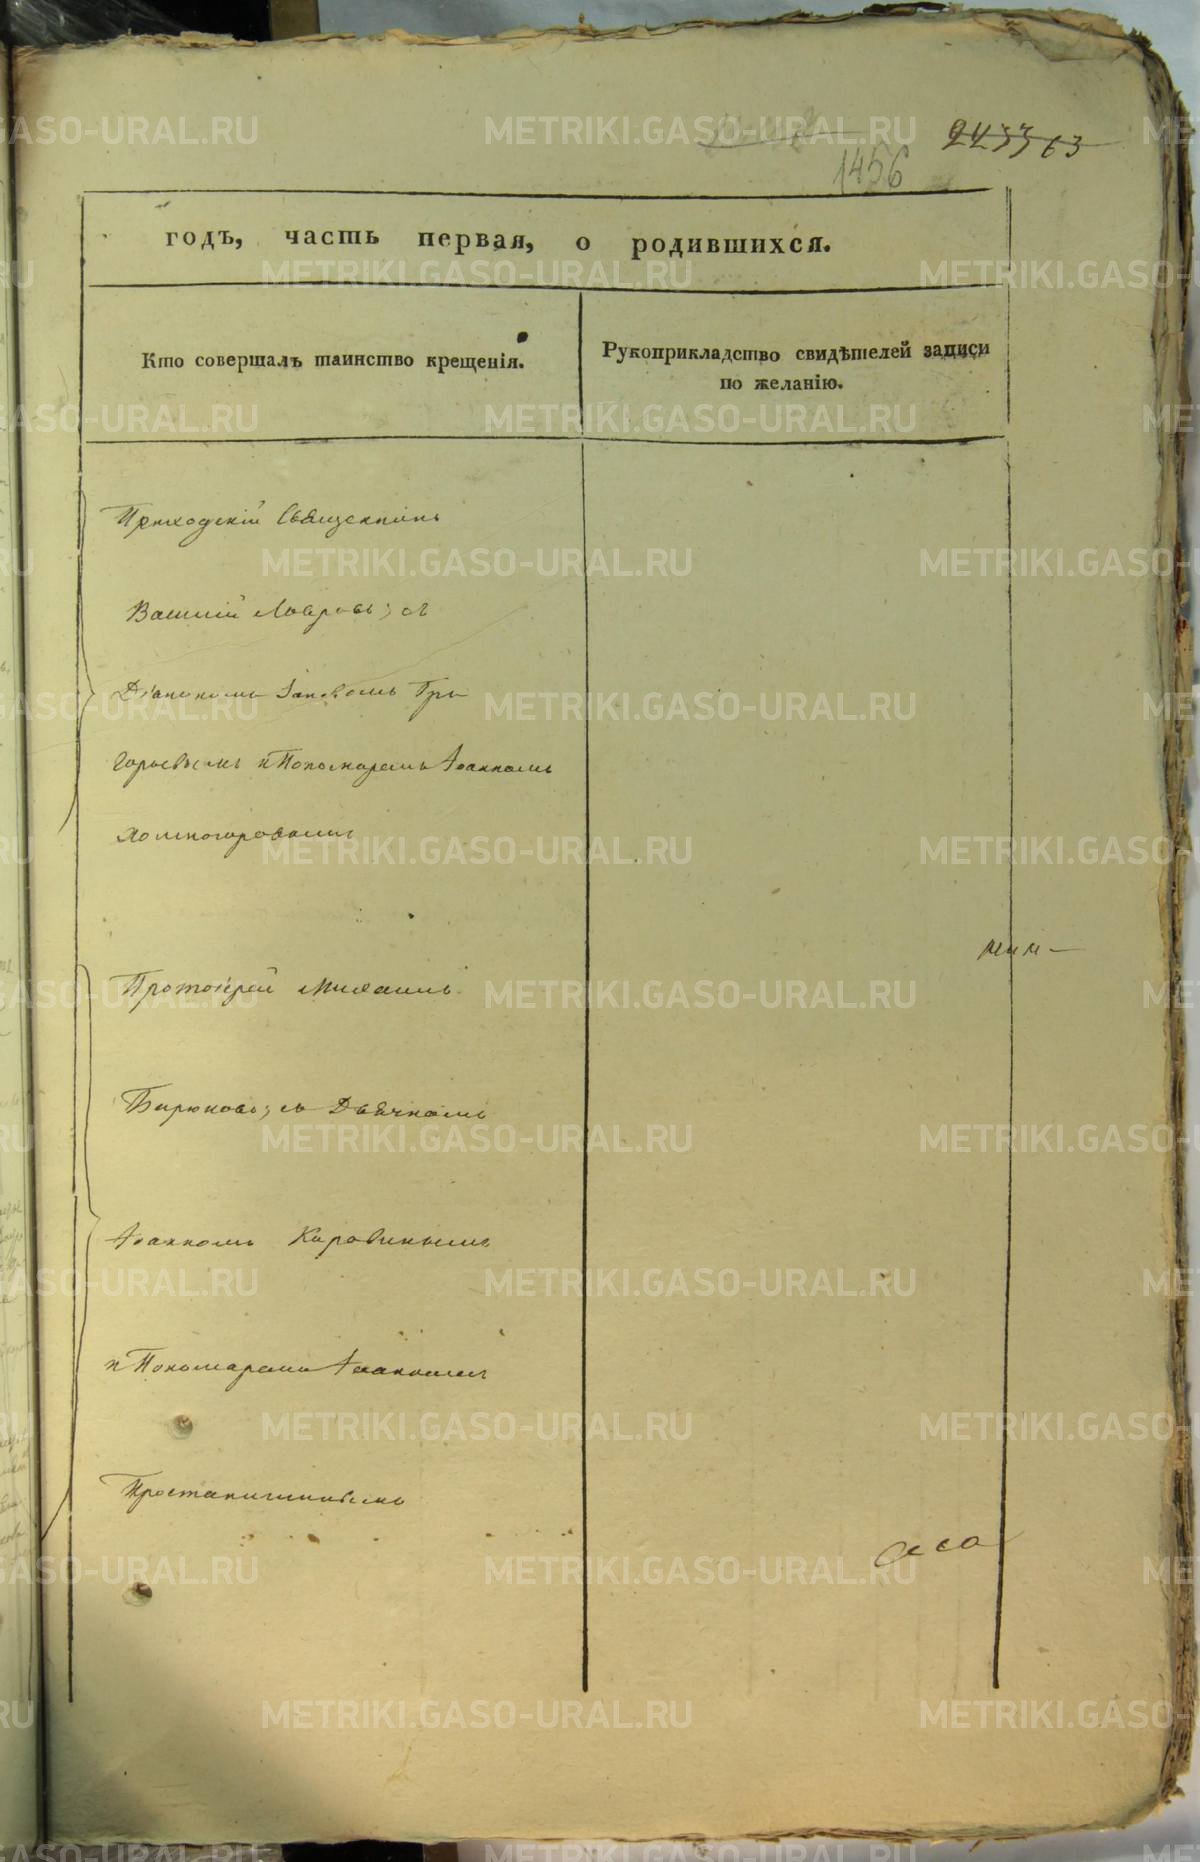 2433 63
1456
годъ, часть первая, о родившихся.
Кто совершалъ таинство крещенія.
Рукоприкладство свидѣтелей записи
по желанію.
Приходскій Священникъ
Василій Лавровъ; съ
Діакономъ Іаковомъ Гри-
горьевымъ и Пономаремъ Іоанномъ
Холмогоровымъ
Протоіерей Михаилъ
Бирюковъ; съ Дьячкомъ
Іоанномъ Коровинымъ
и Пономаремъ Іоанномъ
METRIKI.GASO-URAL.RU